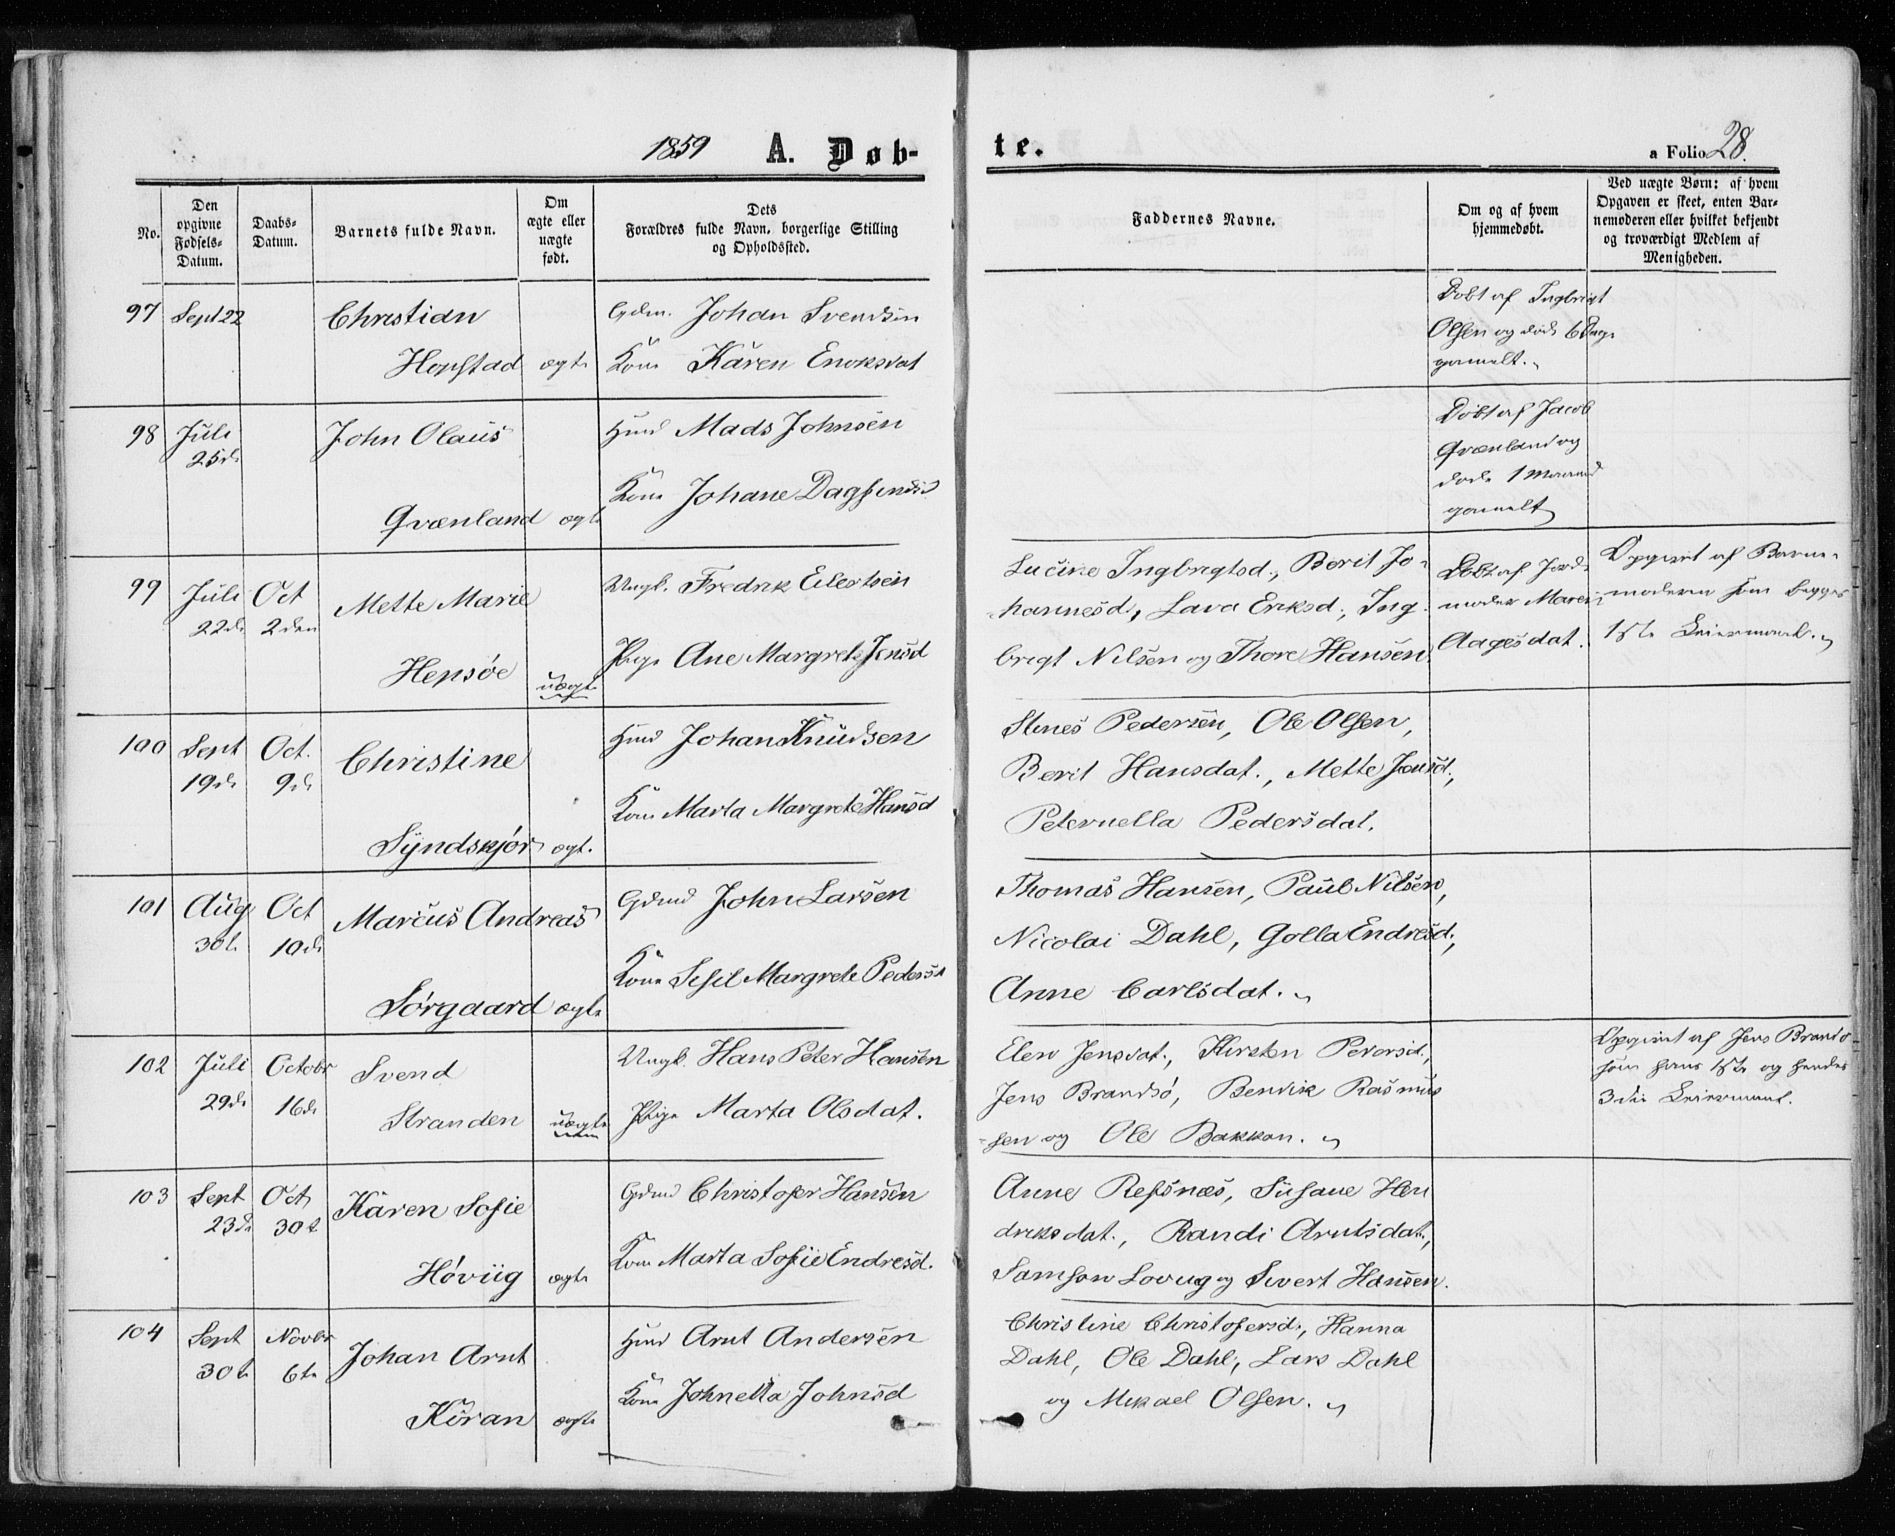 1859 A. Døb-
te.
a Folio 28.
No.
Den opgivne Fødsels-Datum.
Daabs-Datum.
Barnets fulde Navn.
Om ægte eller uægte født.
Dets Forældres fulde Navn, borgerlige Stilling og Opholdssted.
Faddernes Navne.
Om og af hvem hjemmedøbt.
Ved uægte Børn: af hvem Opgaven er skeet, enten Barnemoderen eller hvilket bekjendt og troværdigt Medlem af Menigheden.
97 Sept 22 Christian Gdm. Johan Svendsen
Hopstad ægte Kone Karen Enoksdat
Døbt af Ingbrigt
Olsen og døde 6 Dage
gamelt.
98 Juli 25de John Olaus Huusmd Mads Johnsen
Kone Johane Dagfinsd
Qvænland ægte
Døbt af Jacob
Qvænland og
døde 1 Maaned
gamelt
99 Juli 22de Oct 2den Mette Marie Ungk. Fredrik Eilertsen
Hepsøe uægte Pige Ane Margrete Jensd
Lucine Ingbrigtsd., Berit Jo-
hannesd., Lava Eriksd., Ing-
brigt Nilsen og Thore Hansen
Døbt af Jord-
moder Maren
Aagesdat.
Opgivet af Barne-
moderen som begges
1ste Leiermaal.
100 Sept 19de Oct. 9de Christine Huusmd Johan Knudsen
Kone Marta Margrete Hansd
Syndskjør ægt.
Stines Pedersen, Ole Olsen,
Berit Hansdat., Mette Jensd.,
Peternella Pedersdat.
101 Aug 30te Oct 10de Marcus Andreas Gdmd John Larsen
Kone Sesil Margrete Pedersd
Sørgaard ægte
Thomas Hansen, Paul Nilsen,
Nicolai Dahl, Golla Endresd.,
Anne Carlsdat.
102 Juli 29de Octobr 16de Svend Ungk. Hans Peter Hansen
Stranden uægte Pige Marta Olsdat.
Elen Jensdat., Kirsten Pedersd.,
Jens Brandsø, Bendik Rasmus-
sen og Ole Bakken.
Opgivet af Jens Brandsø
som hans 1ste og hendes
3die Leiermaal.
103 Sept 23de Oct 30te Karen Sofie Gdmd Christofer Hansen
Kone Marta Sofie Endresd.
Høviig ægte
Anne Refsnæs, Susane Hen
driksdat., Randi Arntsdat.,
Samson Lovug og Sivert Hansen.
104 Sept 30te Novbr 6te Johan Arnt Huusmd Arnt Andersen
Kiran ægte Kone Johnetta Johnsd
Christine Christofersd., Hanna
Dahl, Ole Dahl, Lars Dahl
og Mikael Olsen.